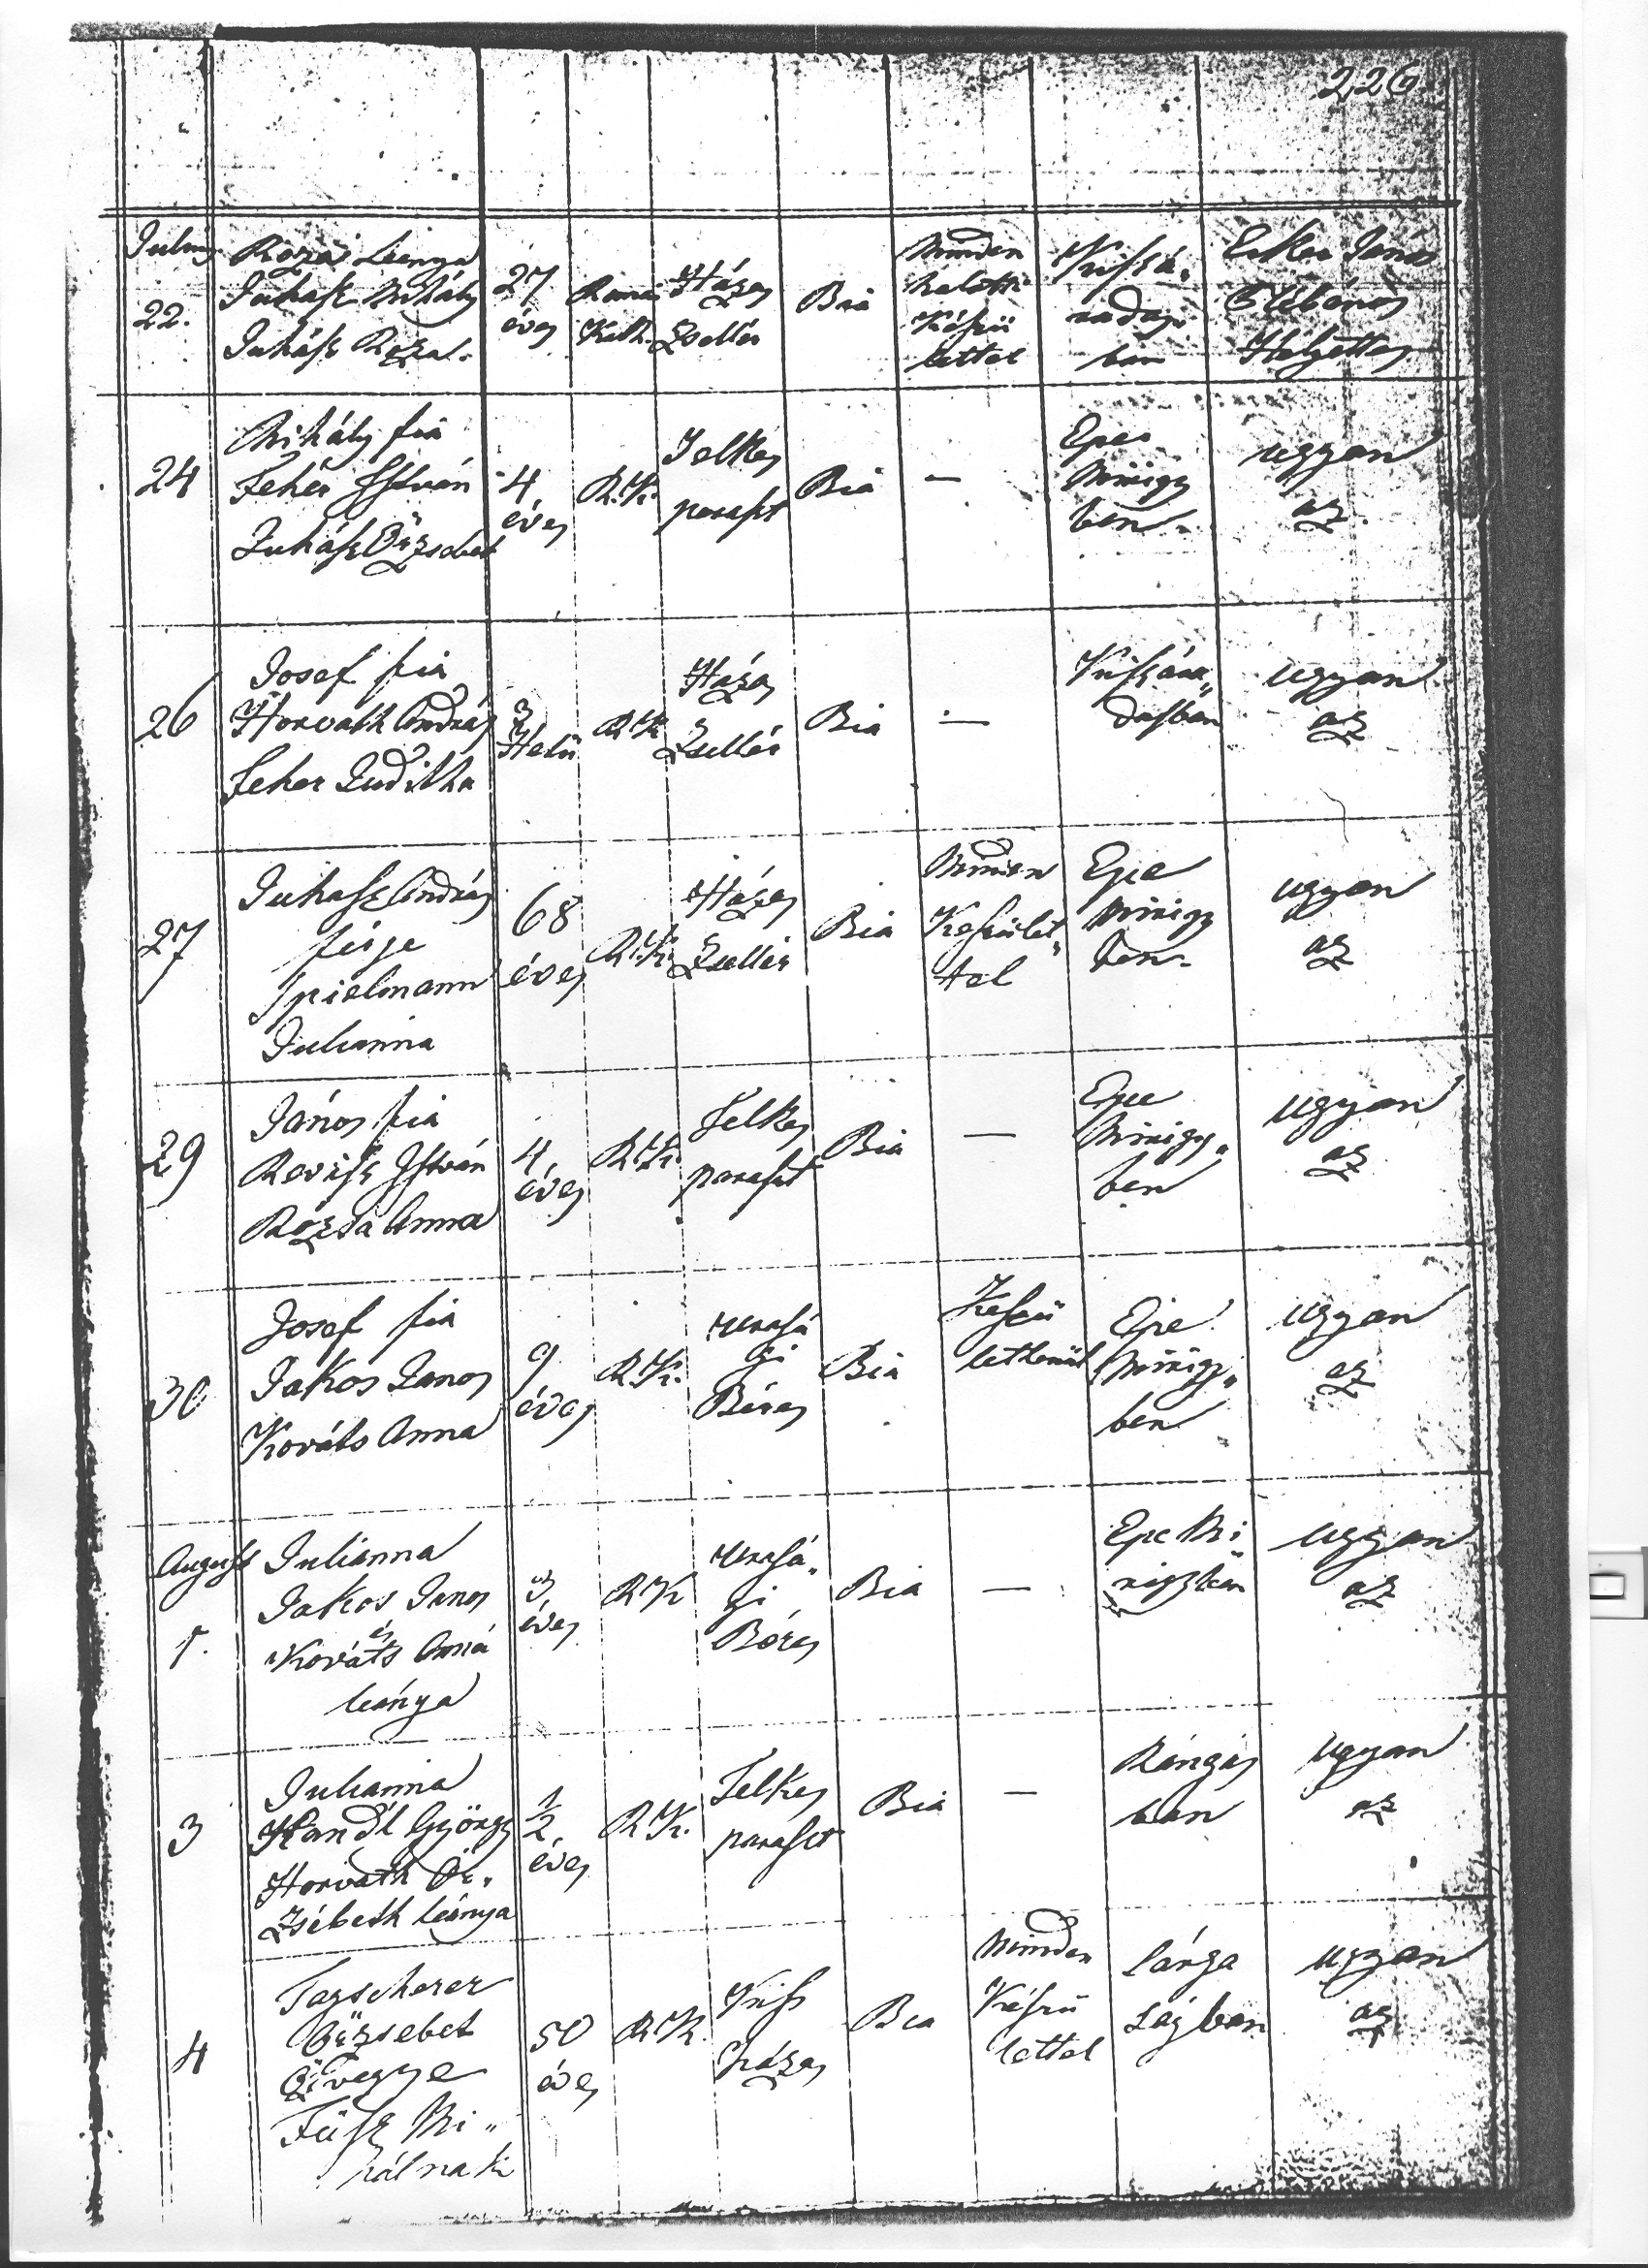 226
Julius
22.
Rozái Leánya
Juhász Mihály
Juhász Rozal.
27
éves
Romai
Kath.
Házas
Zsellér
Bia
Minden
Készü
lettel
Kiszá„
radas„
ban
Erker János
Plébános
Helyettes
24
Mihály fia
Fehér István
Juhász Örzsebet
4
éves
R. K.
Telkes
paraszt
Bia
—
Epe
Mirigy
ben
ugyan
az
26
Josef fia
Horvath András
Feher Juditha
3
Hetü
R. K
Házas
Zsellér
Bia
—
Kiszára„
dasban
ugyan
az
27
Juhasz András
féije
Spielmann
Julianna
68
éves
R. K.
Házas
Zsellér
Bia
Minden
Keszület„
tel
Epe
Mirigy
ben
ugyan
az
29
János fia
Revisz István
Rózsa Anna
4
éves
R. K.
Telkes
paraszt
Bia
—
Epe
Mirigy„
ben
ugyan
az
30
Josef fia
Jakos Janos
Kováts Anna
9
éves
R. K.
Urasá
gi
Béres
Bia
Keszü
letlenül
Epe
Mirigy„
ben
ugyan
az
August
1.
Julianna
Jakos Janos
és
Kováts Anna
leánya
3
éves
R. K
Urasá„
gi
Béres
Bia
—
Epe Mi
rigyben
ugyan
az
3
Julianna
Handl György
Horváth Ör„
zsébeth leánya
1/2
éves
R. K.
Telkes
paraszt
Bia
—
Rángás
ban
ugyan
az
4
Tagscherer
Örzsebet
özvegye
Füsz Mi„
hálnak
50
éves
R. K.
Kiss
házas
Bia
Minden
Készü
lettel
Sárga
ságban
ugyan
az